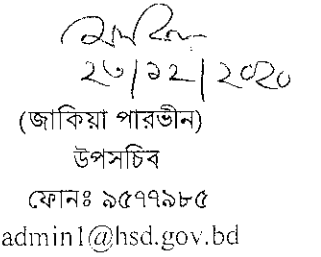 ২৩/১২/২০২০
(জাকিয়া পারভীন)
উপসচিব
ফোনঃ ৯৫৭৭৯৮৫
admin1@hsd.gov.bd